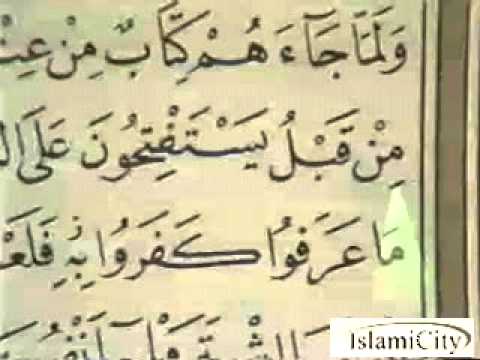 وَلَمَّا جَآءَ هُمْ كِتَابٌ مِنْ عِنْ
مِنْ قَبْلُ يَسْتَفْتِحُونَ عَلَى ال
مَا عَرَفُوا كَفَرُوا بِهِ فَلَعْ
IslamiCity